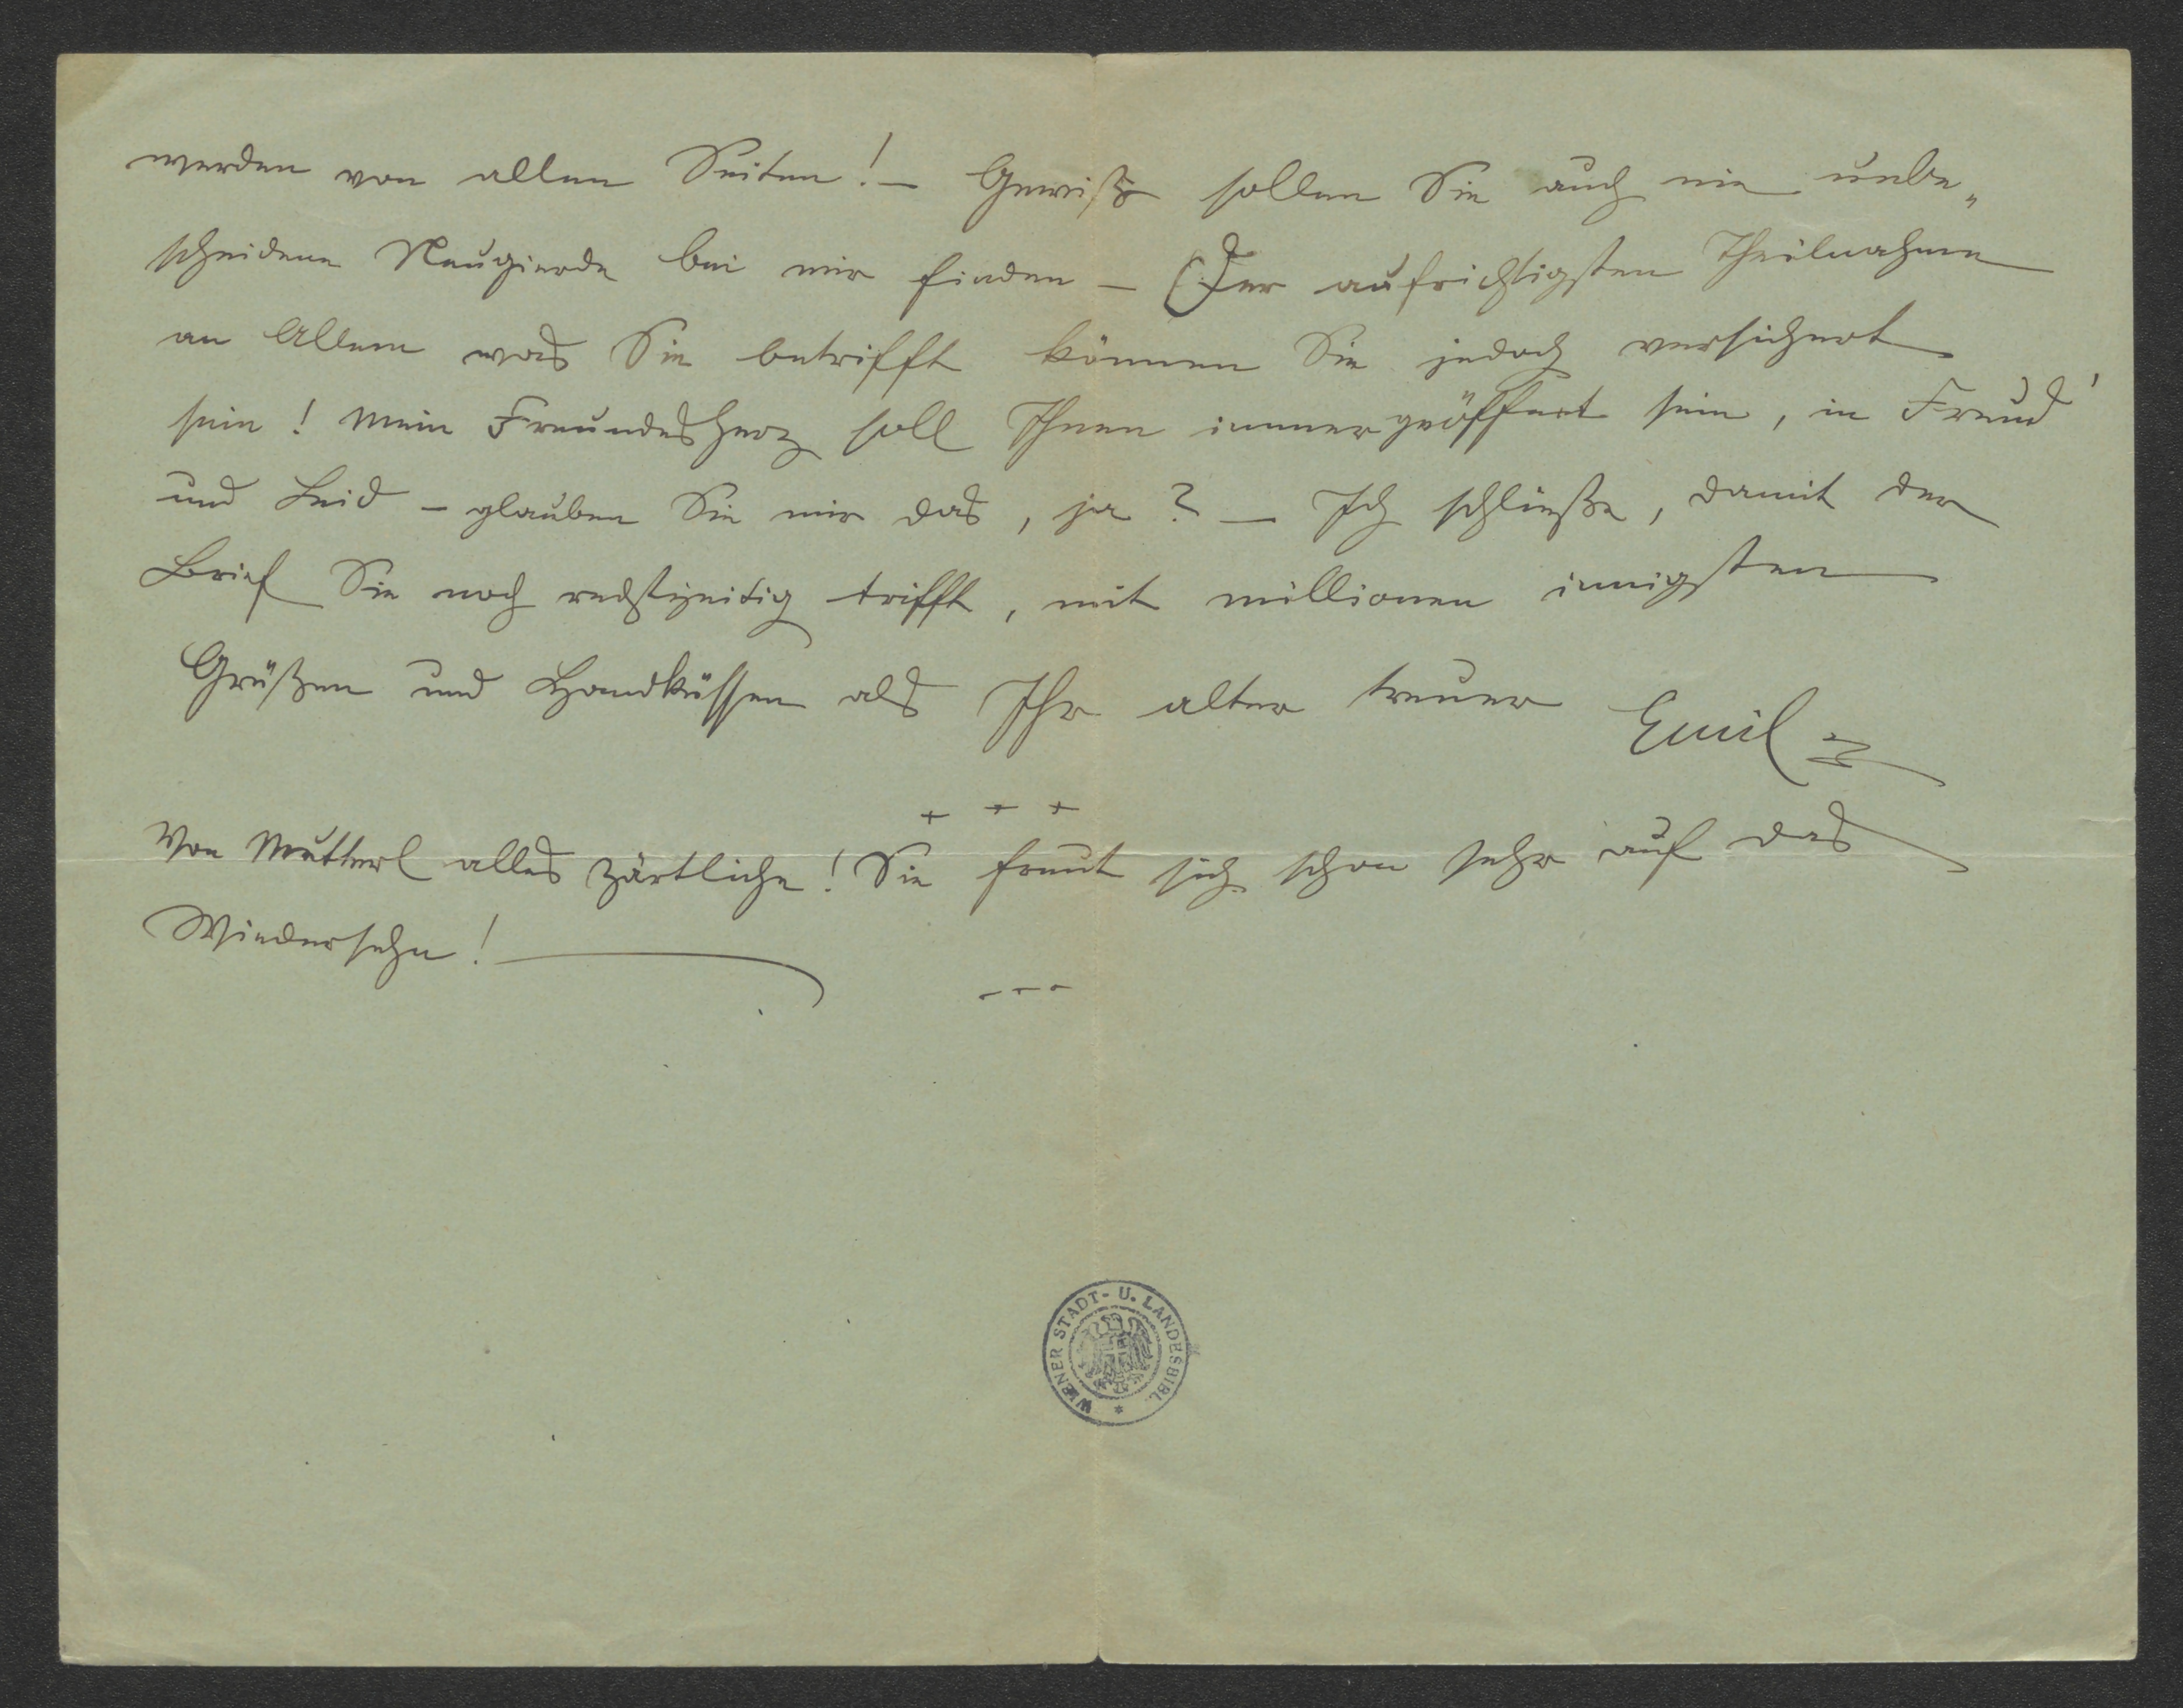 werden von allen Seiten! – Gewiß sollen Sie auch nie unbe„
scheidene Neugierde bei mir finden – Der aufrichtigsten Theilnahme
an Allem was Sie betrifft können Sie jedoch versichert
sein! Mein Freundesherz soll Ihnen immer geöffnet sein, in Freud'
und Leid – glauben Sie mir das, ja? – Ich schließe, damit der
Brief Sie noch rechtzeitig trifft, mit millionen innigsten
Grüßen und Handküssen als Ihr alter treuer Emil
+ + +
Von Mutterl alles zärtliche! Sie freut sich schon sehr auf das
Wiedersehn! —
- - -
WIENER STADT- U. LANDESBIBL. *